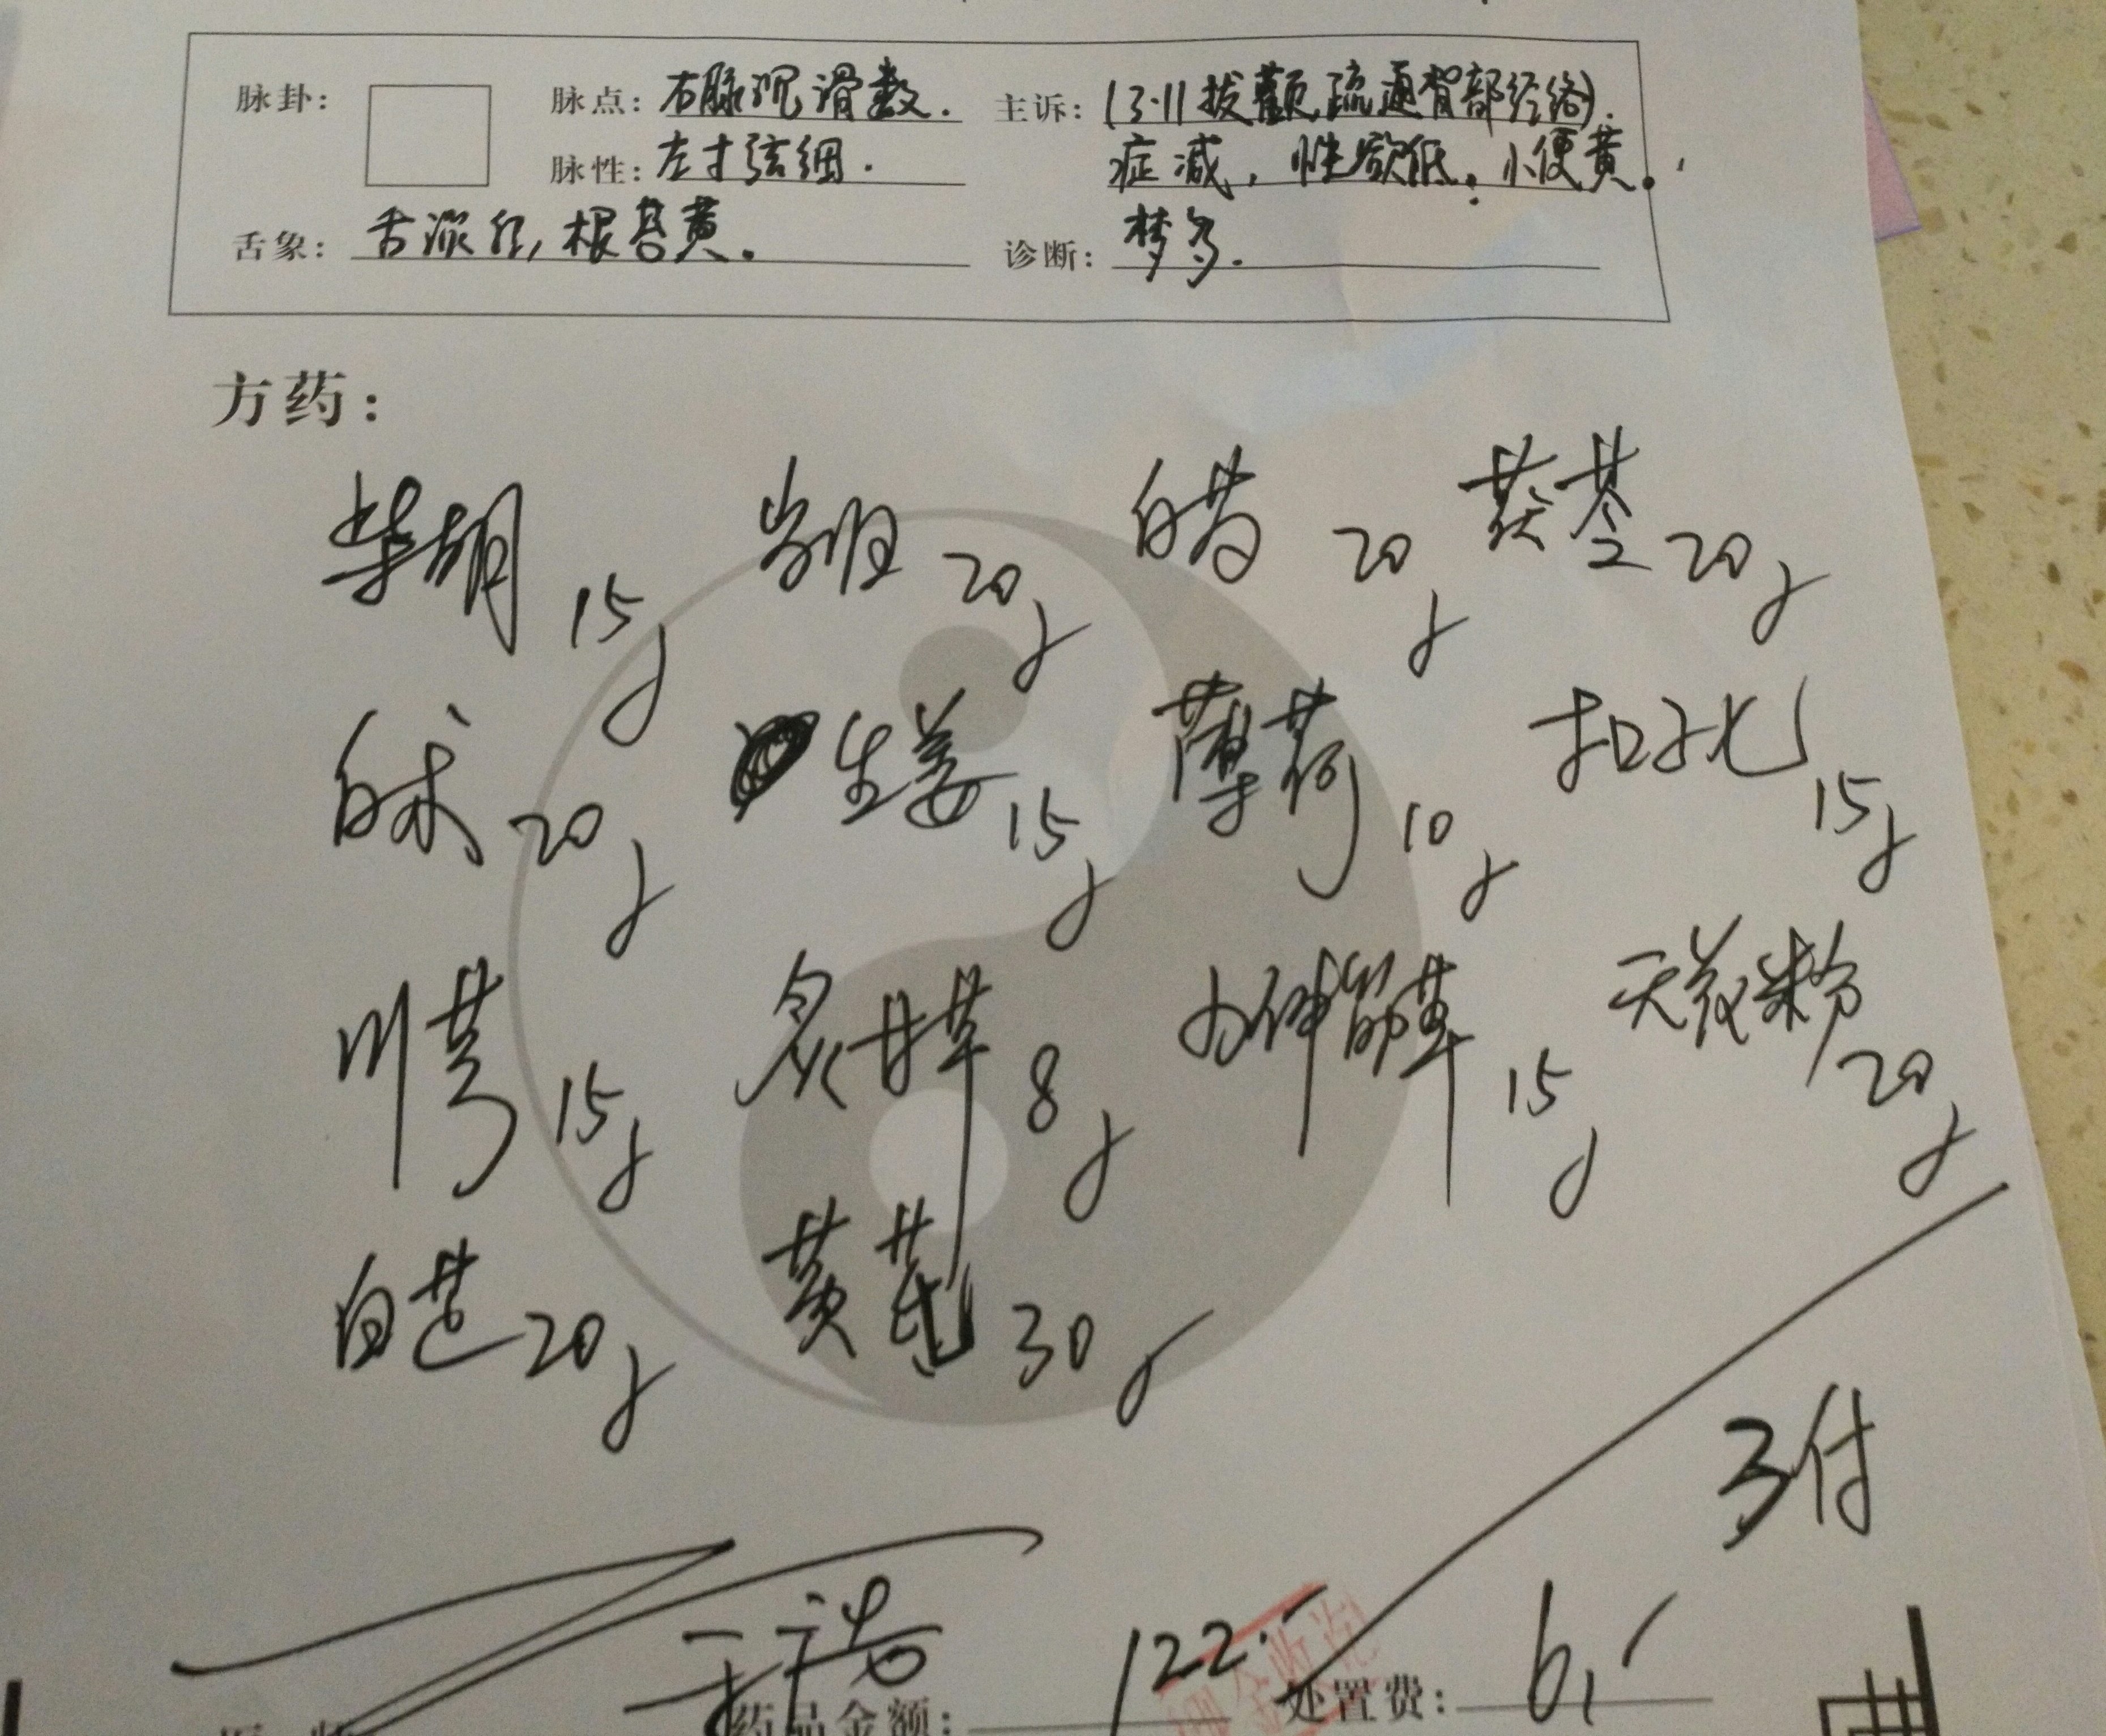 脉卦： 脉点：右脉沉滑数． 主诉：(3·11拔罐，疏通背部经络)．
脉性：左寸弦细． 症减，性欲低．小便黄．
舌象：舌淡红，根苔黄． 诊断：梦多．
方药：
柴胡15g 当归20g 白芍20g 茯苓20g
白术20g 生姜15g 薄荷10g 枸杞15g
川芎15g 炙甘草8g 伸筋草15g 天花粉20g
白芷20g 黄芪30g
3付
药品金额： 122. 处置费： 6.